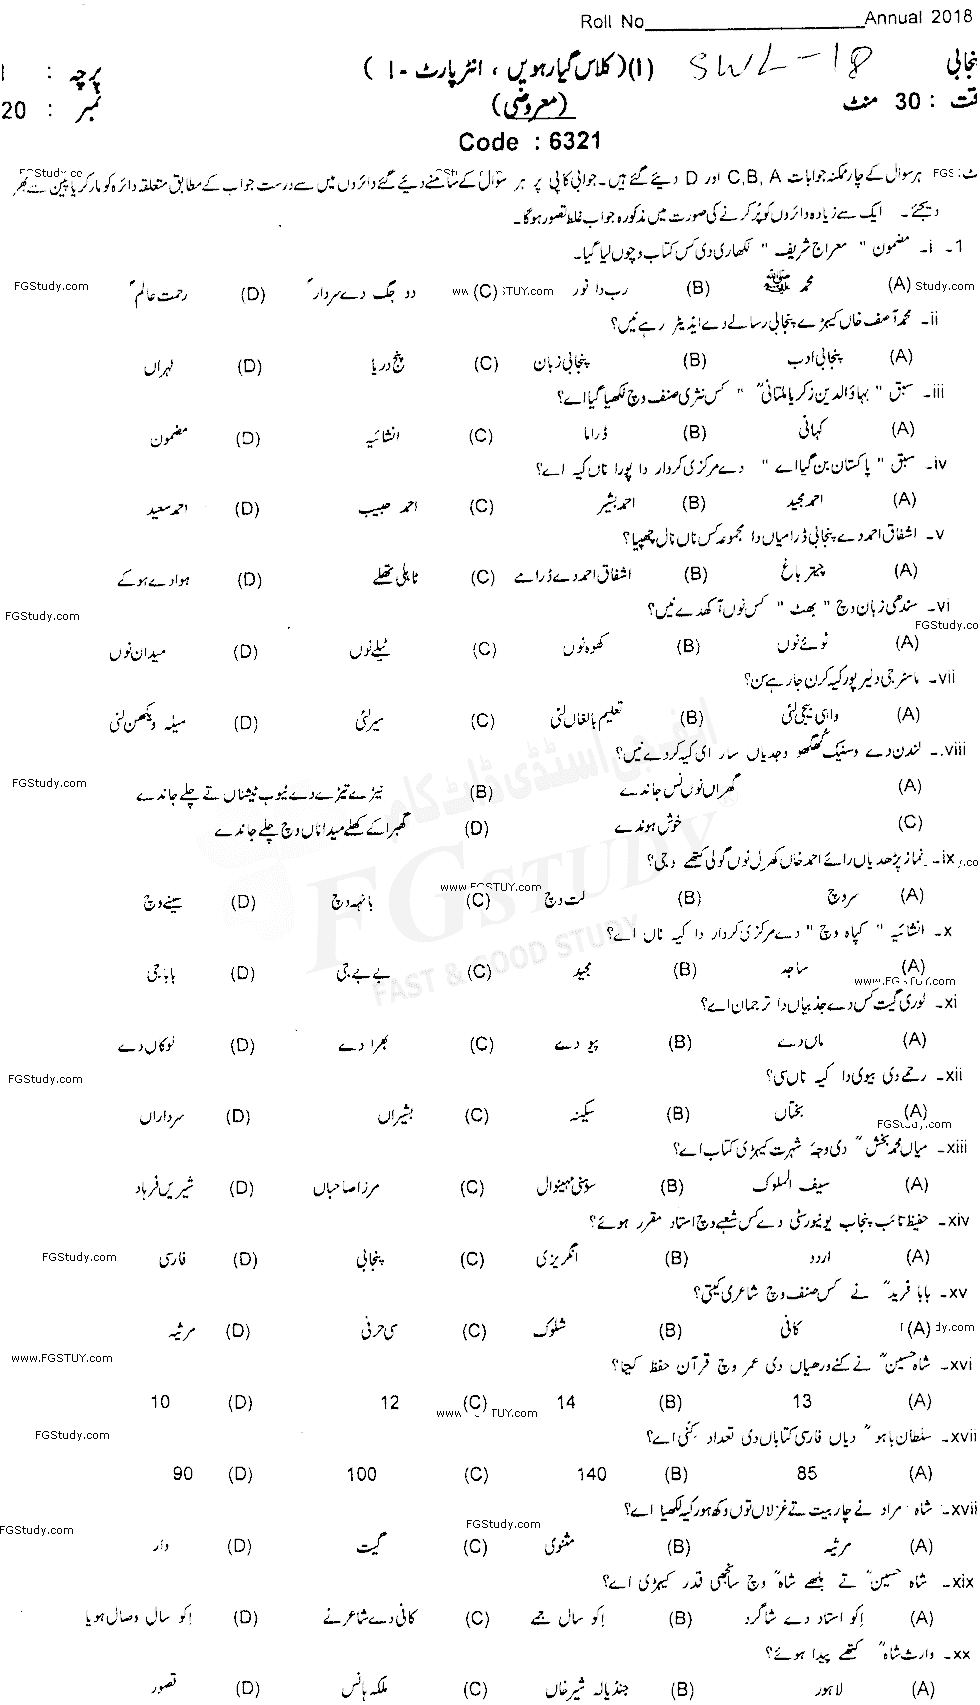 Roll No____________________Annual 2018
پنجابی SWL-18 (۱) (کلاس گیارہویں ، انٹر پارٹ - ۱) پرچہ : ۱
وقت : 30 منٹ (معروضی) نمبر : 20
Code : 6321
ہر سوال کے چار ممکنہ جوابات A ,B ,C اور D دیئے گئے ہیں۔ جوابی کاپی پر ہر سوال کے سامنے دیئے گئے دائروں میں سے درست جواب کے مطابق متعلقہ دائرہ کو مارکر یا پین سے بھر
دیجئے۔ ایک سے زیادہ دائروں کو پُر کرنے کی صورت میں مذکورہ جواب غلط تصور ہوگا۔
1۔ i۔ مضمون " معراج شریف " لکھاری دی کس کتاب وچوں لیا گیا۔
(A) محمد ﷺ (B) رب دا نور (C) دو جگ دے سردار (D) رحمت عالم
ii۔ محمد آصف خاں کیہڑے پنجابی رسالے دے ایڈیٹر رہے نیں؟
(A) پنجابی ادب (B) پنجابی زبان (C) پنج دریا (D) لہراں
iii۔ سبق " بہاؤالدین زکریا ملتانی " کس نثری صنف وچ لکھیا گیا اے؟
(A) کہانی (B) ڈراما (C) انشائیہ (D) مضمون
iv۔ سبق " پاکستان بن گیا اے " دے مرکزی کردار دا پورا ناں کیہ اے؟
(A) احمد مجید (B) احمد بشیر (C) احمد حبیب (D) احمد سعید
v۔ اشفاق احمد دے پنجابی ڈرامیاں دا مجموعہ کس ناں نال چھپیا؟
(A) چیتر باغ (B) اشفاق احمد دے ڈرامے (C) ٹاہلی تھلے (D) ہوا دے ہوکے
vi۔ سندھی زبان وچ " بھٹ " کس نوں آکھدے نیں؟
(A) ٹوئے نوں (B) کھوہ نوں (C) ٹیلے نوں (D) میدان نوں
vii۔ ماسٹر جی دلیر پور کیہ کرن جا رہے سن؟
(A) واہی بیجی لئی (B) تعلیم بالغاں لئی (C) سیر لئی (D) میلہ ویکھن لئی
viii۔ لندن دے وسنیک گھگھو وجدیاں سار ای کیہ کردے نیں؟
(A) گھراں نوں نس جاندے (B) نیڑے تیڑے دے ٹیوب ٹیشناں تے چلے جاندے
(C) خوش ہوندے (D) گھبرا کے کھلے میداناں وچ چلے جاندے
ix۔ نماز پڑھدیاں رائے احمد خاں کھرل نوں گولی کتھے وجی؟
(A) سر وچ (B) لت وچ (C) بانہہ وچ (D) سینے وچ
x۔ انشائیہ " کپاہ وچ " دے مرکزی کردار دا کیہ ناں اے؟
(A) ساجد (B) مجید (C) بے بے جی (D) بابا جی
xi۔ لوری گیت کس دے جذبیاں دا ترجمان اے؟
(A) ماں دے (B) پیو دے (C) بھرا دے (D) لوکاں دے
xii۔ رحمے دی بیوی دا کیہ ناں سی؟
(A) بختاں (B) سکینہ (C) بشیراں (D) سرداراں
xiii۔ میاں محمد بخش دی وجہ شہرت کیہڑی کتاب اے؟
(A) سیف الملوک (B) سوہنی مہینوال (C) مرزا صاحباں (D) شیریں فرہاد
xiv۔ حفیظ تائب پنجاب یونیورسٹی دے کس شعبے وچ استاد مقرر ہوئے؟
(A) اردو (B) انگریزی (C) پنجابی (D) فارسی
xv۔ بابا فرید نے کس صنف وچ شاعری کیتی؟
(A) کافی (B) شلوک (C) سی حرفی (D) مرثیہ
xvi۔ شاہ حسین نے کنے ورھیاں دی عمر وچ قرآن حفظ کیتا؟
(A) 13 (B) 14 (C) 12 (D) 10
xvii۔ سلطان باہو دیاں فارسی کتاباں دی تعداد کنی اے؟
(A) 85 (B) 140 (C) 100 (D) 90
xvii۔ شاہ مراد نے چار بیت تے غزلاں توں وکھ ہور کیہ لکھیا اے؟
(A) مرثیہ (B) مثنوی (C) گیت (D) وار
xix۔ شاہ حسین تے بلھے شاہ وچ سانجھی قدر کیہڑی اے؟
(A) اِکو استاد دے شاگرد (B) اِکو سال جمے (C) کافی دے شاعر نے (D) اِکو سال وصال ہویا
xx۔ وارث شاہ کتھے پیدا ہوئے؟
(A) لاہور (B) جنڈیالہ شیر خاں (C) ملکہ ہانس (D) قصور
ایف جی اسٹڈی ڈاٹ کام
FG STUDY
FAST & GOOD STUDY
FGStudy.com
www.FGSTUY.com